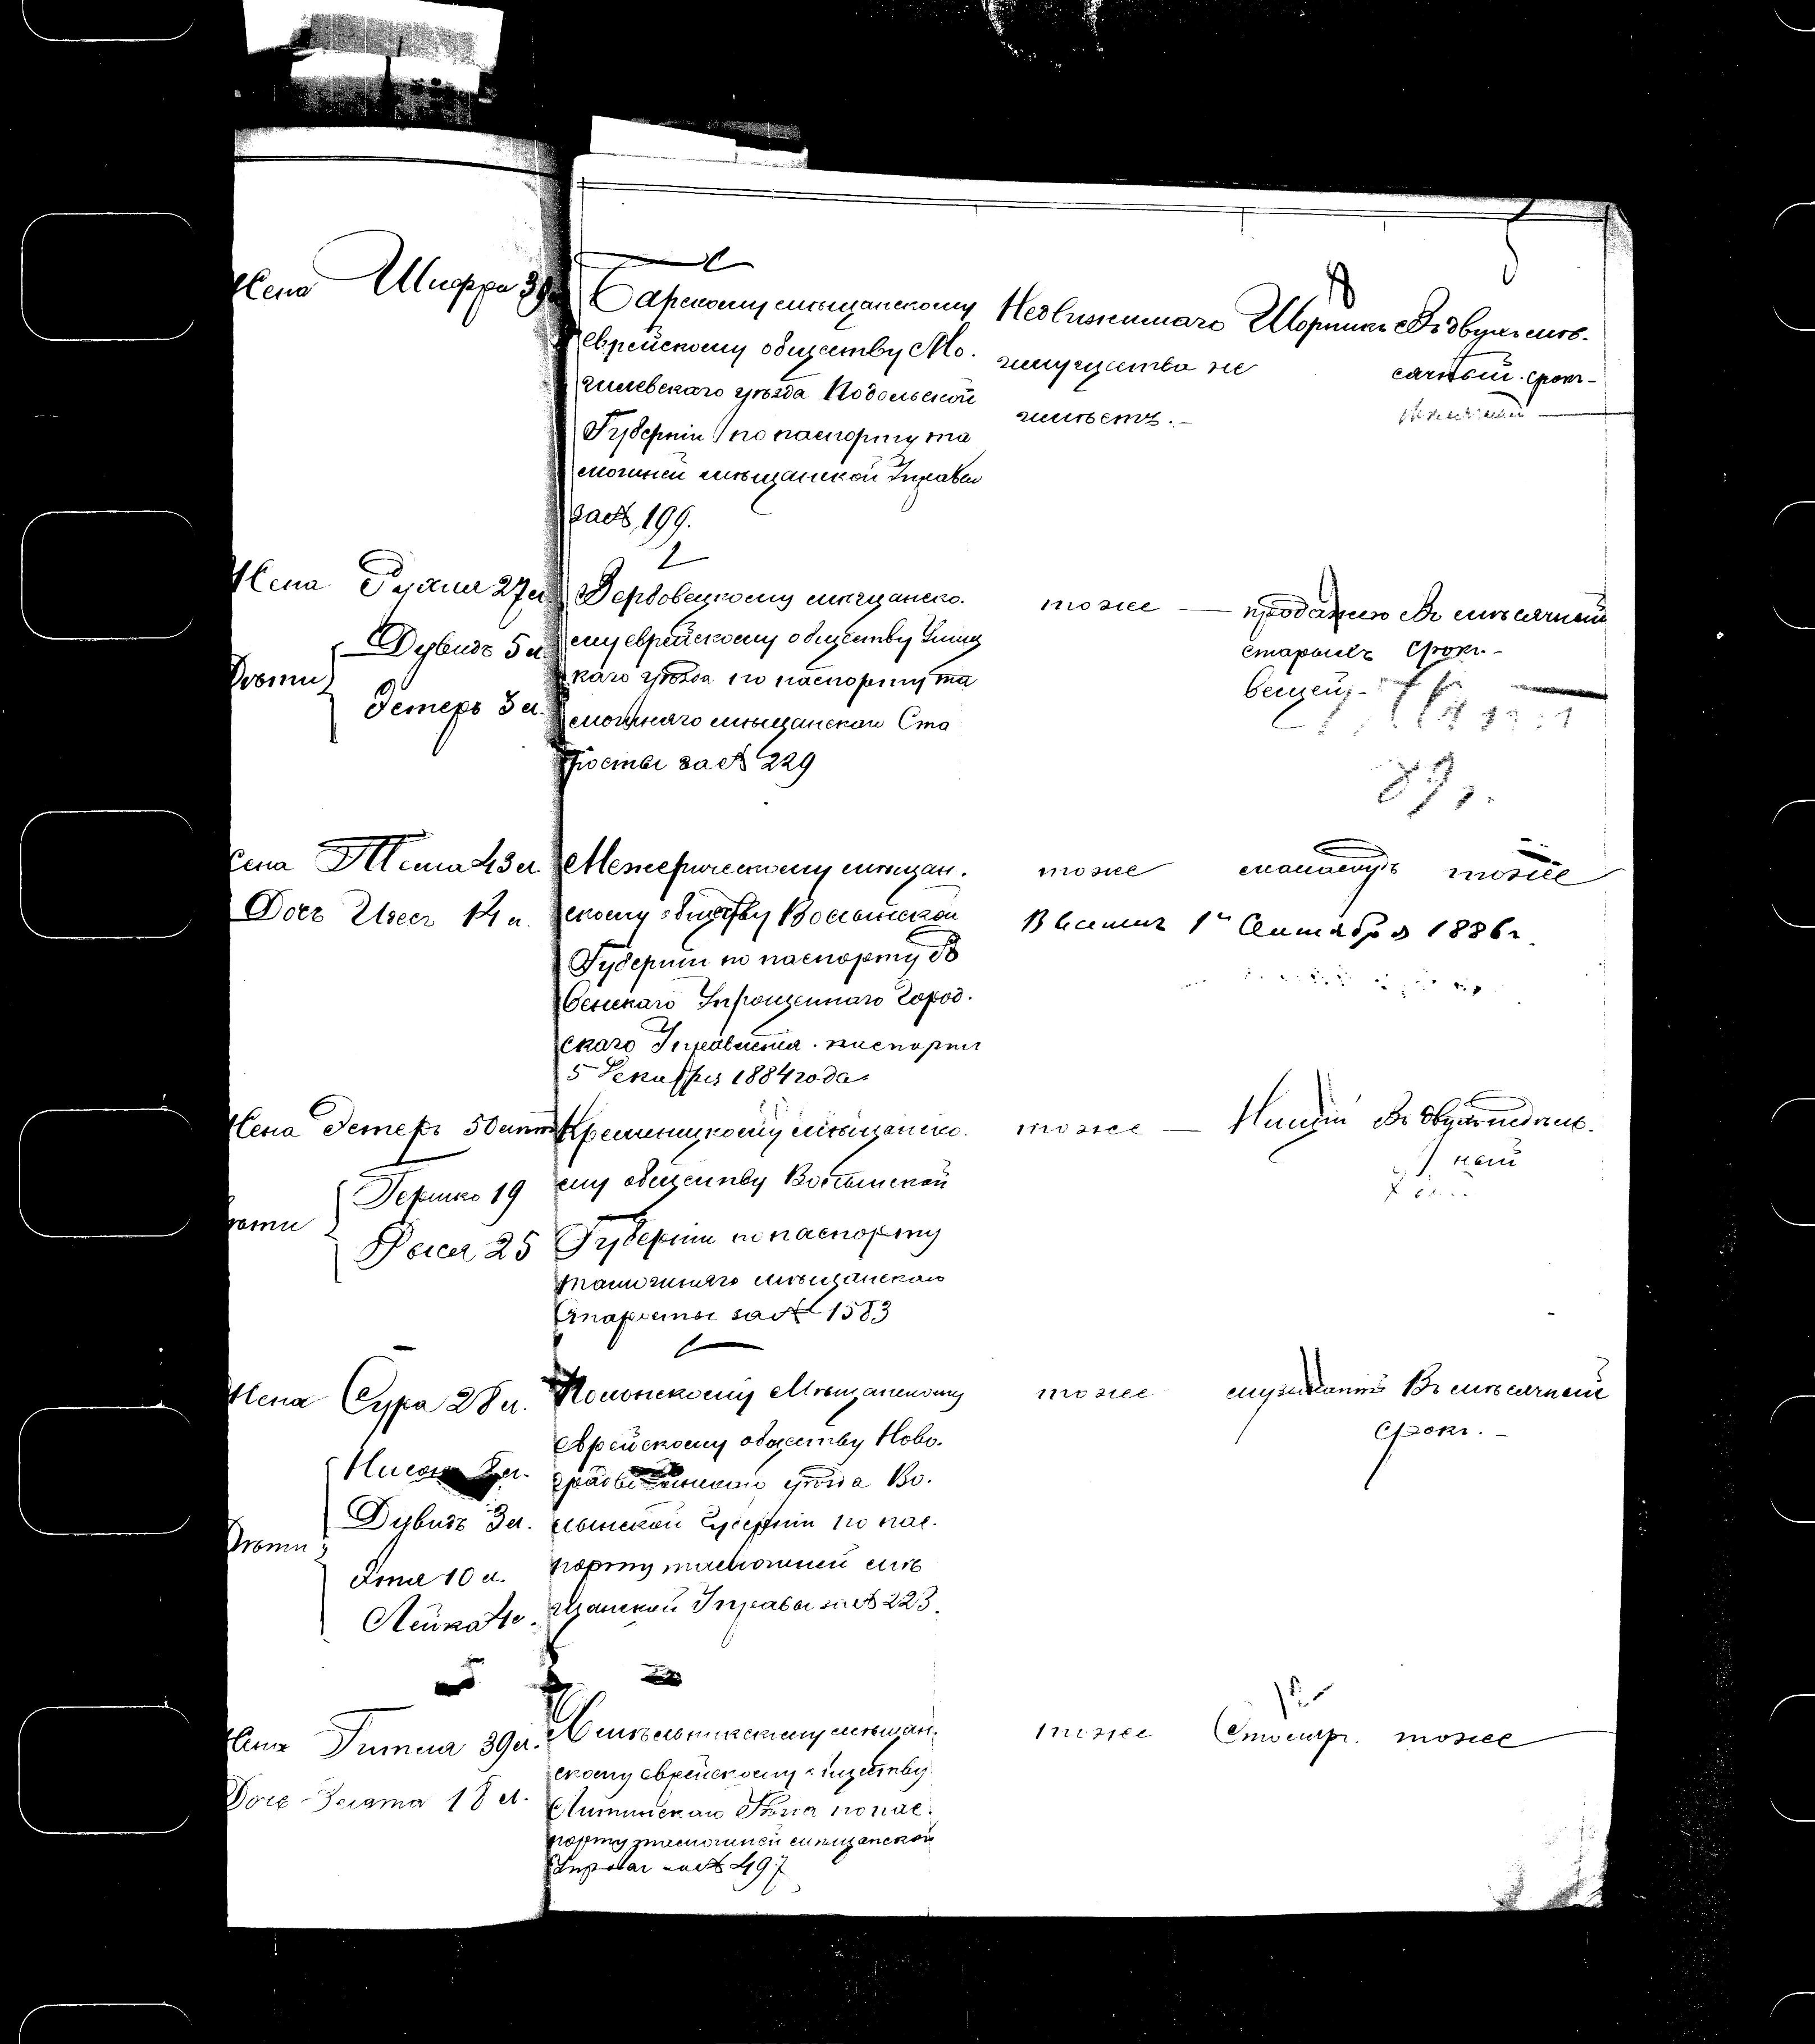 Жена Шифра 39
Барскому мѣщанскому
еврейскому обществу Мо-
гилевскаго уѣзда Подольской
Губерніи по паспорту та
мошней мѣщанской Управы
за № 199.
Недвижимаго
имущества не
имѣетъ.-
Шорникъ
Въ двухмѣ-
сячный срокъ-
Жена Рухля 27 л.
Дѣти
Дувидъ 5 л.
Эстеръ 3 л.
2
Вербовецкому мѣщанско-
му еврейскому обществу Ушиц
каго уѣзда по паспорту та
мошняго мѣщанскаго Ста
росты за № 229
тоже —
продажею
старыхъ
вещей,-
Въ мѣсячный
срокъ.-
89 г.
Жена 43 л.
Дочь 14 л.
Межеричскому мѣщан-
скому обществу Волынской
Губерніи по паспорту
Упрощеннаго Город-
скаго Управленія. паспортъ
5 Декабря 1884 года
тоже
тоже
1го Сентября 1886 г.
Жена Эстеръ 50 лѣтъ
Дѣти
Гершко 19
Рыся 25
Кременецкому мѣщанско-
му обществу Волынской
Губерніи по паспорту
тамошняго мѣщанскаго
Старосты за № 1583
тоже —
Нищій
Въ двухнедѣль-
ный
Жена Сура 28 л.
Дѣти
Дувидъ 3 л.
10 л.
Лейка
Полонскому Мѣщанскому
еврейскому обществу Ново-
градволынскаго уѣзда Во-
лынской Губерніи по пас-
порту тамошней мѣ
щанской Управы за № 223.
тоже
музыкантъ
Въ мѣсячный
срокъ.-
Жена Гитля 39 л.
Дочь Злата 18 л.
Хмѣльникскому мѣщан-
скому еврейскому обществу
Литинскаго по пас-
порту тамошней мѣщанской
Управы за № 497
тоже
Столяр.
тоже